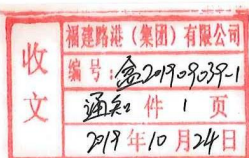 收文
福建路港（集团）有限公司
编号：鑫201909039-1
通知 件 1 页
2019年10月24日